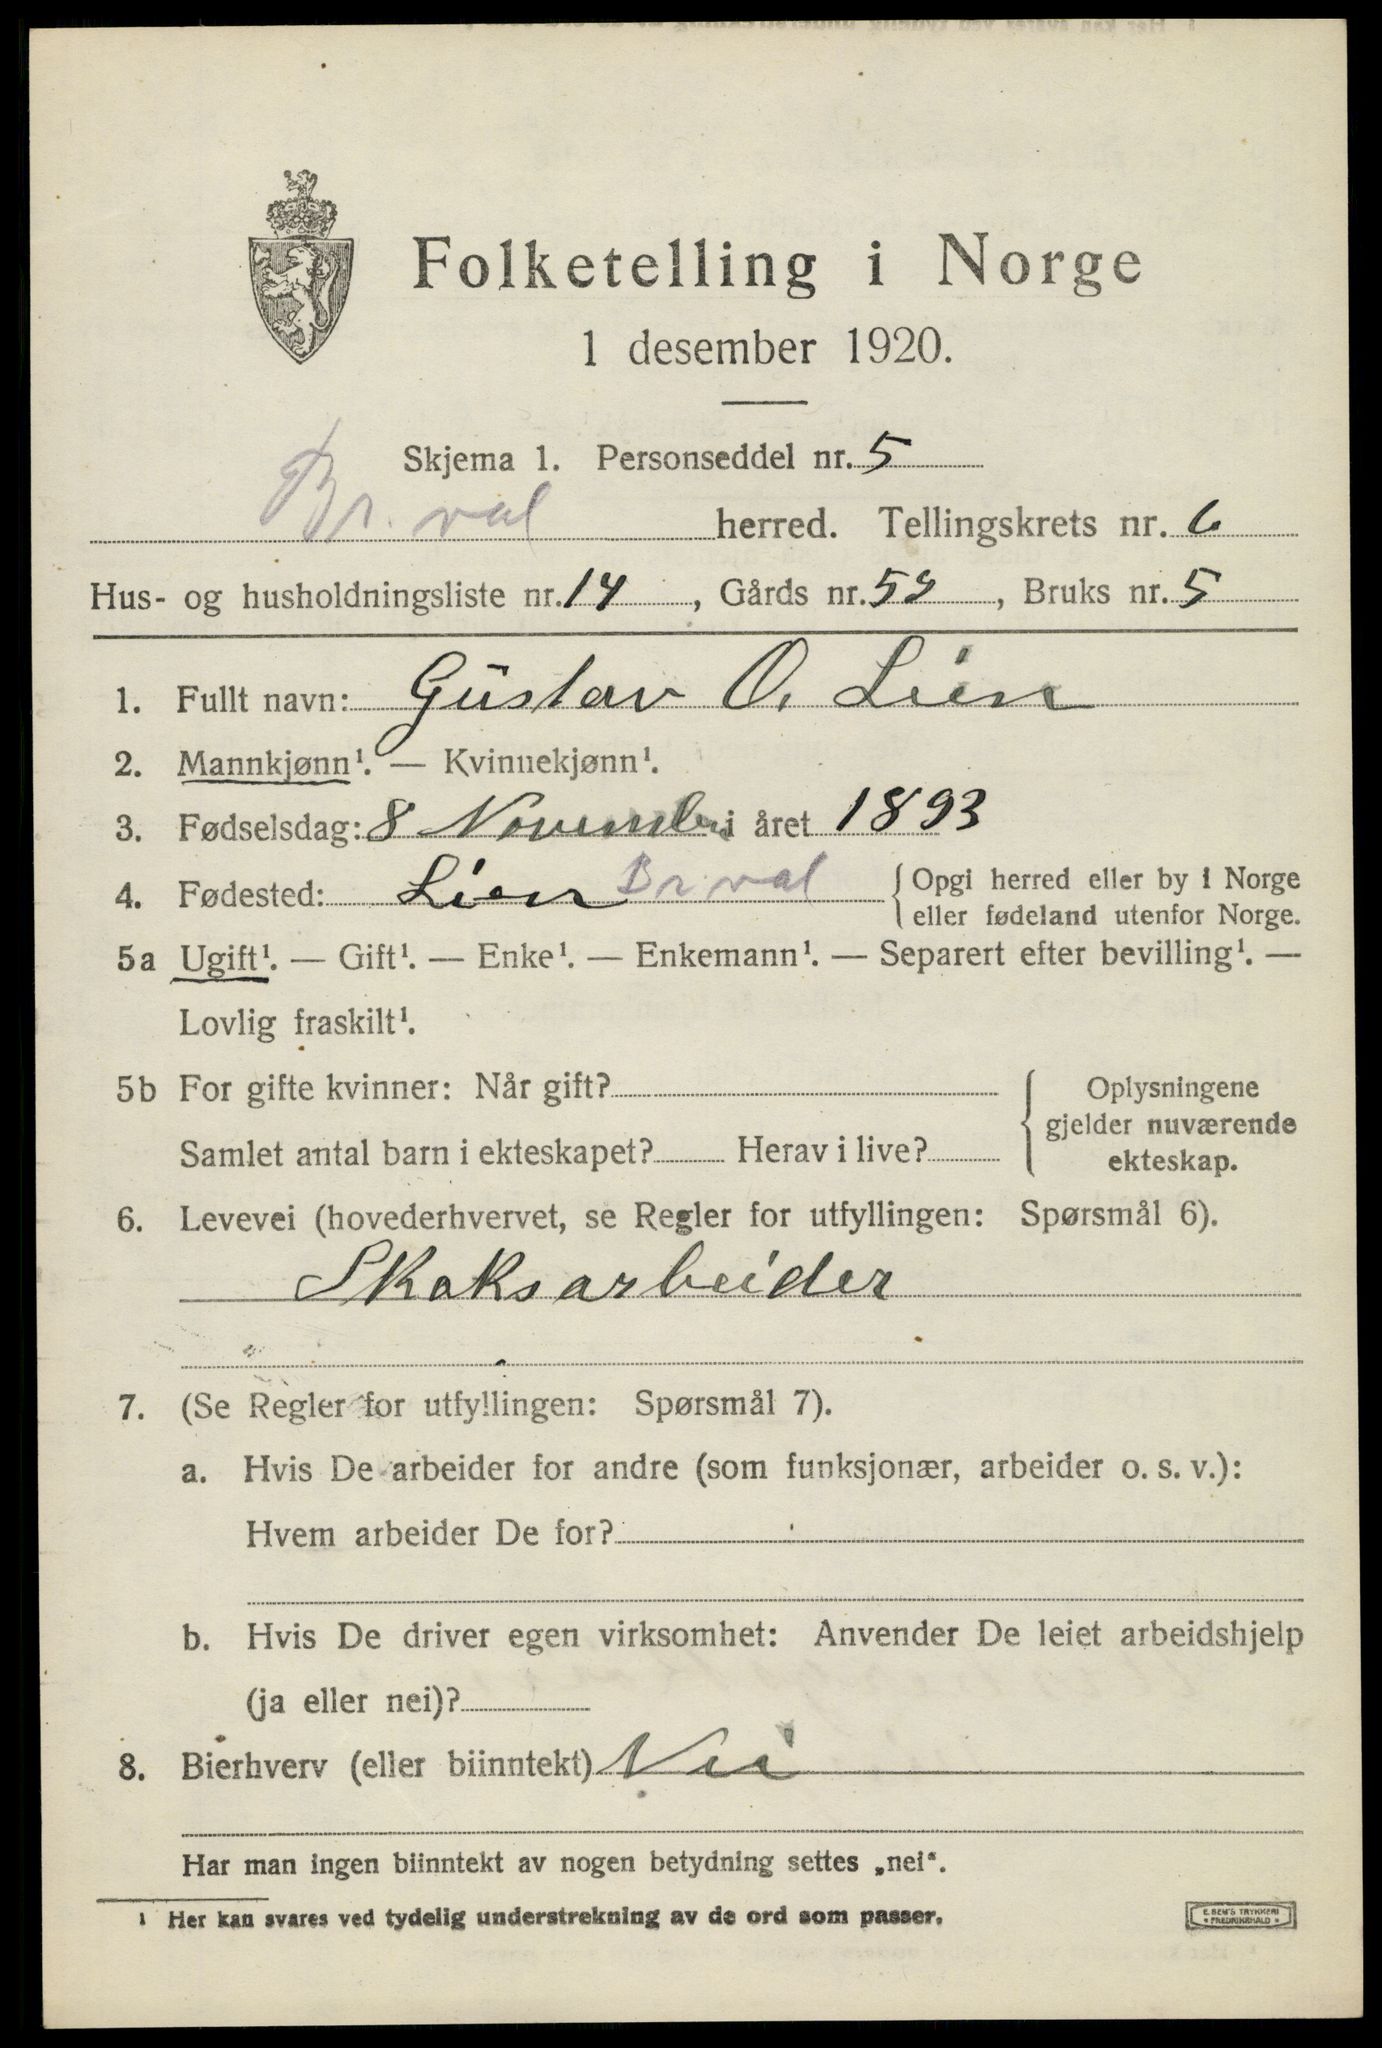 Folketelling i Norge
1 desember 1920.
Skjema 1. Personseddel nr. 5
Br. val herred. Tellingskrets nr. 6
Hus- og husholdningsliste nr. 14, Gårds nr. 59, Bruks nr. 5
1. Fullt navn: Gustav O. Lien
2. Mannkjønn¹. — Kvinnekjønn¹.
3. Fødselsdag: 8 November i året 1893
4. Fødested: Lien Br. val {Opgi herred eller by i Norge
eller fødeland utenfor Norge.
5a Ugift¹. — Gift¹. — Enke¹. — Enkemann¹. — Separert efter bevilling¹. —
Lovlig fraskilt¹.
5b For gifte kvinner: Når gift?
Samlet antal barn i ekteskapet? Herav i live?
{Oplysningene
gjelder nuværende
ekteskap.
6. Levevei (hovederhvervet, se Regler for utfyllingen: Spørsmål 6).
Skoksarbeider
7. (Se Regler for utfyllingen: Spørsmål 7).
a. Hvis De arbeider for andre (som funksjonær, arbeider o. s. v.):
Hvem arbeider De for?
b. Hvis De driver egen virksomhet: Anvender De leiet arbeidshjelp
(ja eller nei)?
8. Bierhverv (eller biinntekt) Nei
Har man ingen biinntekt av nogen betydning settes „nei“.
¹ Her kan svares ved tydelig understrekning av de ord som passer.
E. SEM'S TRYKKERI
• FREDRIKSHALD •